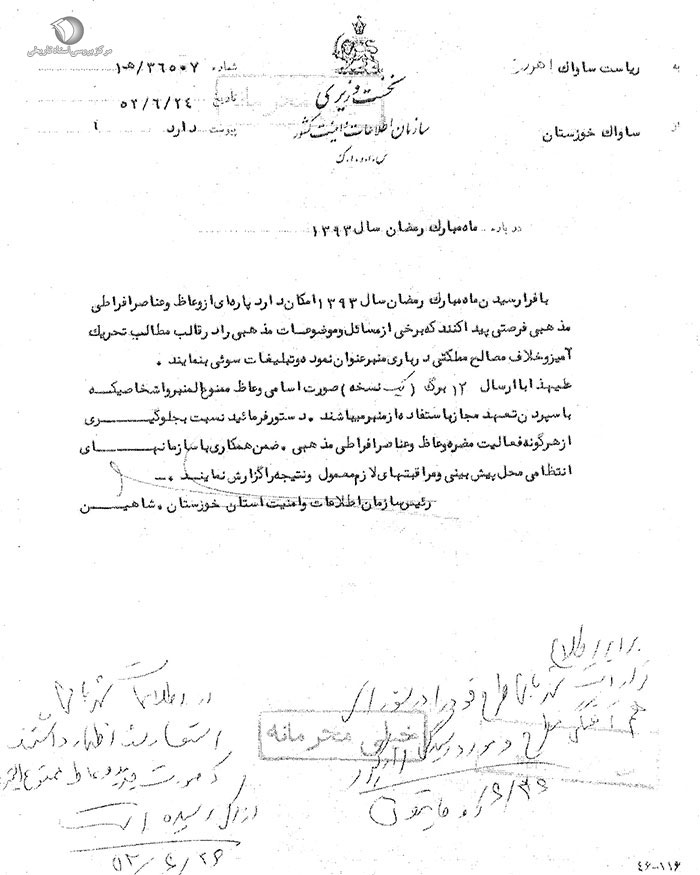 مرکز بررسی اسناد تاریخی
به ریاست ساواک اهواز
شماره ۳۶۵۰۷/ه‍۱
نخست وزیری
تاریخ ۵۲/۶/۲۴
سازمان اطلاعات و امنیت کشور
از ساواک خوزستان
پیوست دارد
س.ا.و.ا.ک
خیلی محرمانه
درباره ماه مبارک رمضان سال ۱۳۹۳
با فرا رسیدن ماه مبارک رمضان سال ۱۳۹۳ امکان دارد پاره‌ای از وعاظ و عناصر افراطی
مذهبی فرصتی پیدا کنند که برخی از مسائل و موضوعات مذهبی را در قالب مطالب تحریک
آمیز و خلاف مصالح مملکتی در بالای منبر عنوان نموده و تبلیغات سوئی بنمایند .
علیهذا با ارسال ۱۲ برگ (یک نسخه) صورت اسامی وعاظ ممنوع المنبر و اشخاصیکه
با سپردن تعهد مجاز باستفاده از منبر میباشند . دستور فرمائید نسبت بجلوگیری
از هرگونه فعالیت مضره وعاظ و عناصر افراطی مذهبی . ضمن همکاری با سازمانهای
انتظامی محل پیش بینی و مراقبتهای لازم معمول و نتیجه را گزارش نمایند .-
رئیس سازمان اطلاعات و امنیت استان خوزستان . شاهین
در اطلاعات شهربانی
اظهار داشتند
که صورت جدید وعاظ ممنوع المنبر
از مرکز رسیده است
۵۲/۶/۲۶
خیلی محرمانه
۴۶-۱۱۶